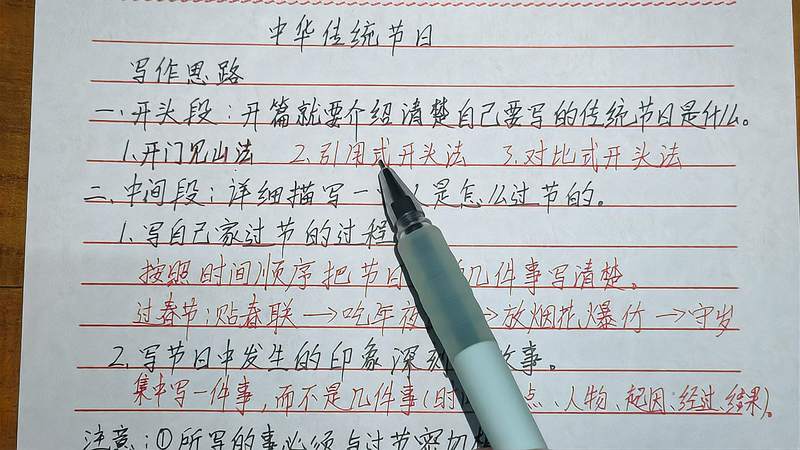 中华传统节日
写作思路
一.开头段：开篇就要介绍清楚自己要写的传统节日是什么。
1.开门见山法 2.引用式开头法 3.对比式开头法
二.中间段：详细描写一 人是怎么过节的。
1.写自己家过节的过程
按照时间顺序把节日 几件事写清楚。
过春节：贴春联→吃年夜 →放烟花爆竹→守岁
2.写节日中发生的印象深刻 故事。
集中写一件事，而不是几件事(时 点、人物、起因、经过、结果)。
注意：①所写的事必须与过节密切